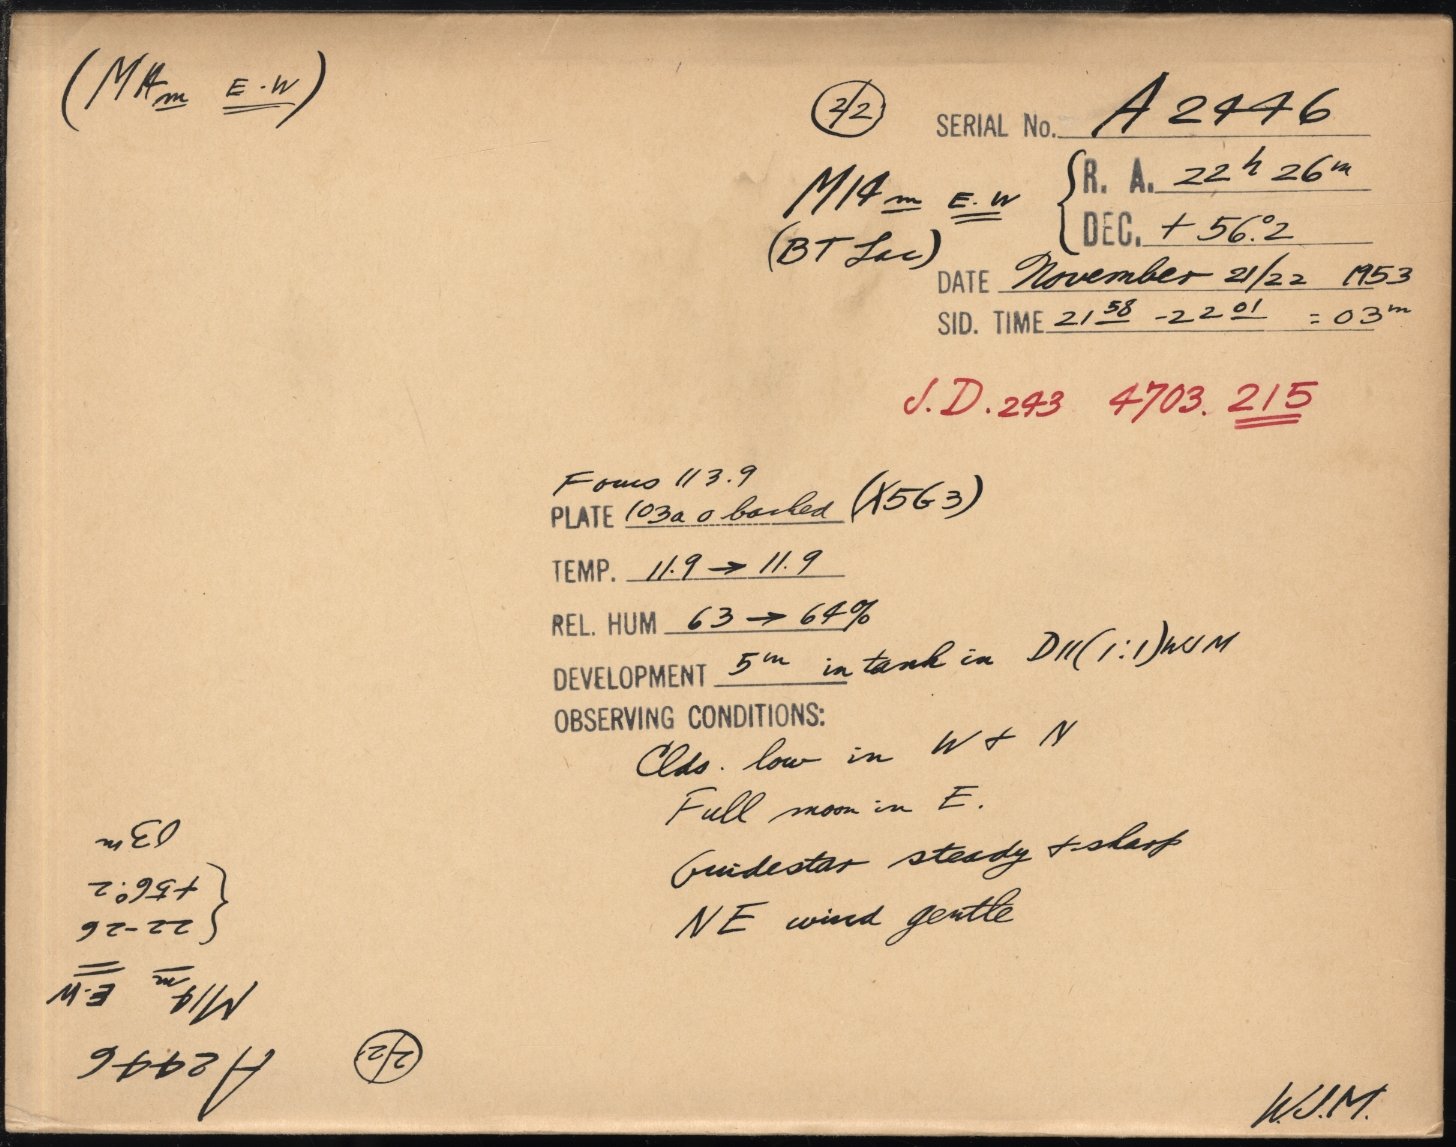 (M14m E-W)
2/2
SERIAL No. A 2446
M14m E-W
R. A. 22h 26m
(BT Lac)
DEC. + 56.°2
DATE November 21/22 1953
SID. TIME 21 58 - 22 01 = 03m
J.D. 243 4703. 215
Focus 113.9
PLATE 103a o backed (X5G3)
TEMP. 11.9 → 11.9
REL. HUM 63 → 64%
DEVELOPMENT 5m in tank in D11(1:1) WJM
OBSERVING CONDITIONS:
Clds. low in W + N
Full moon in E.
Guidestar steady + sharp
NE wind gentle
W.J.M.
2/2
A 2446
M14m E-W
22-26
+56°.2
03m